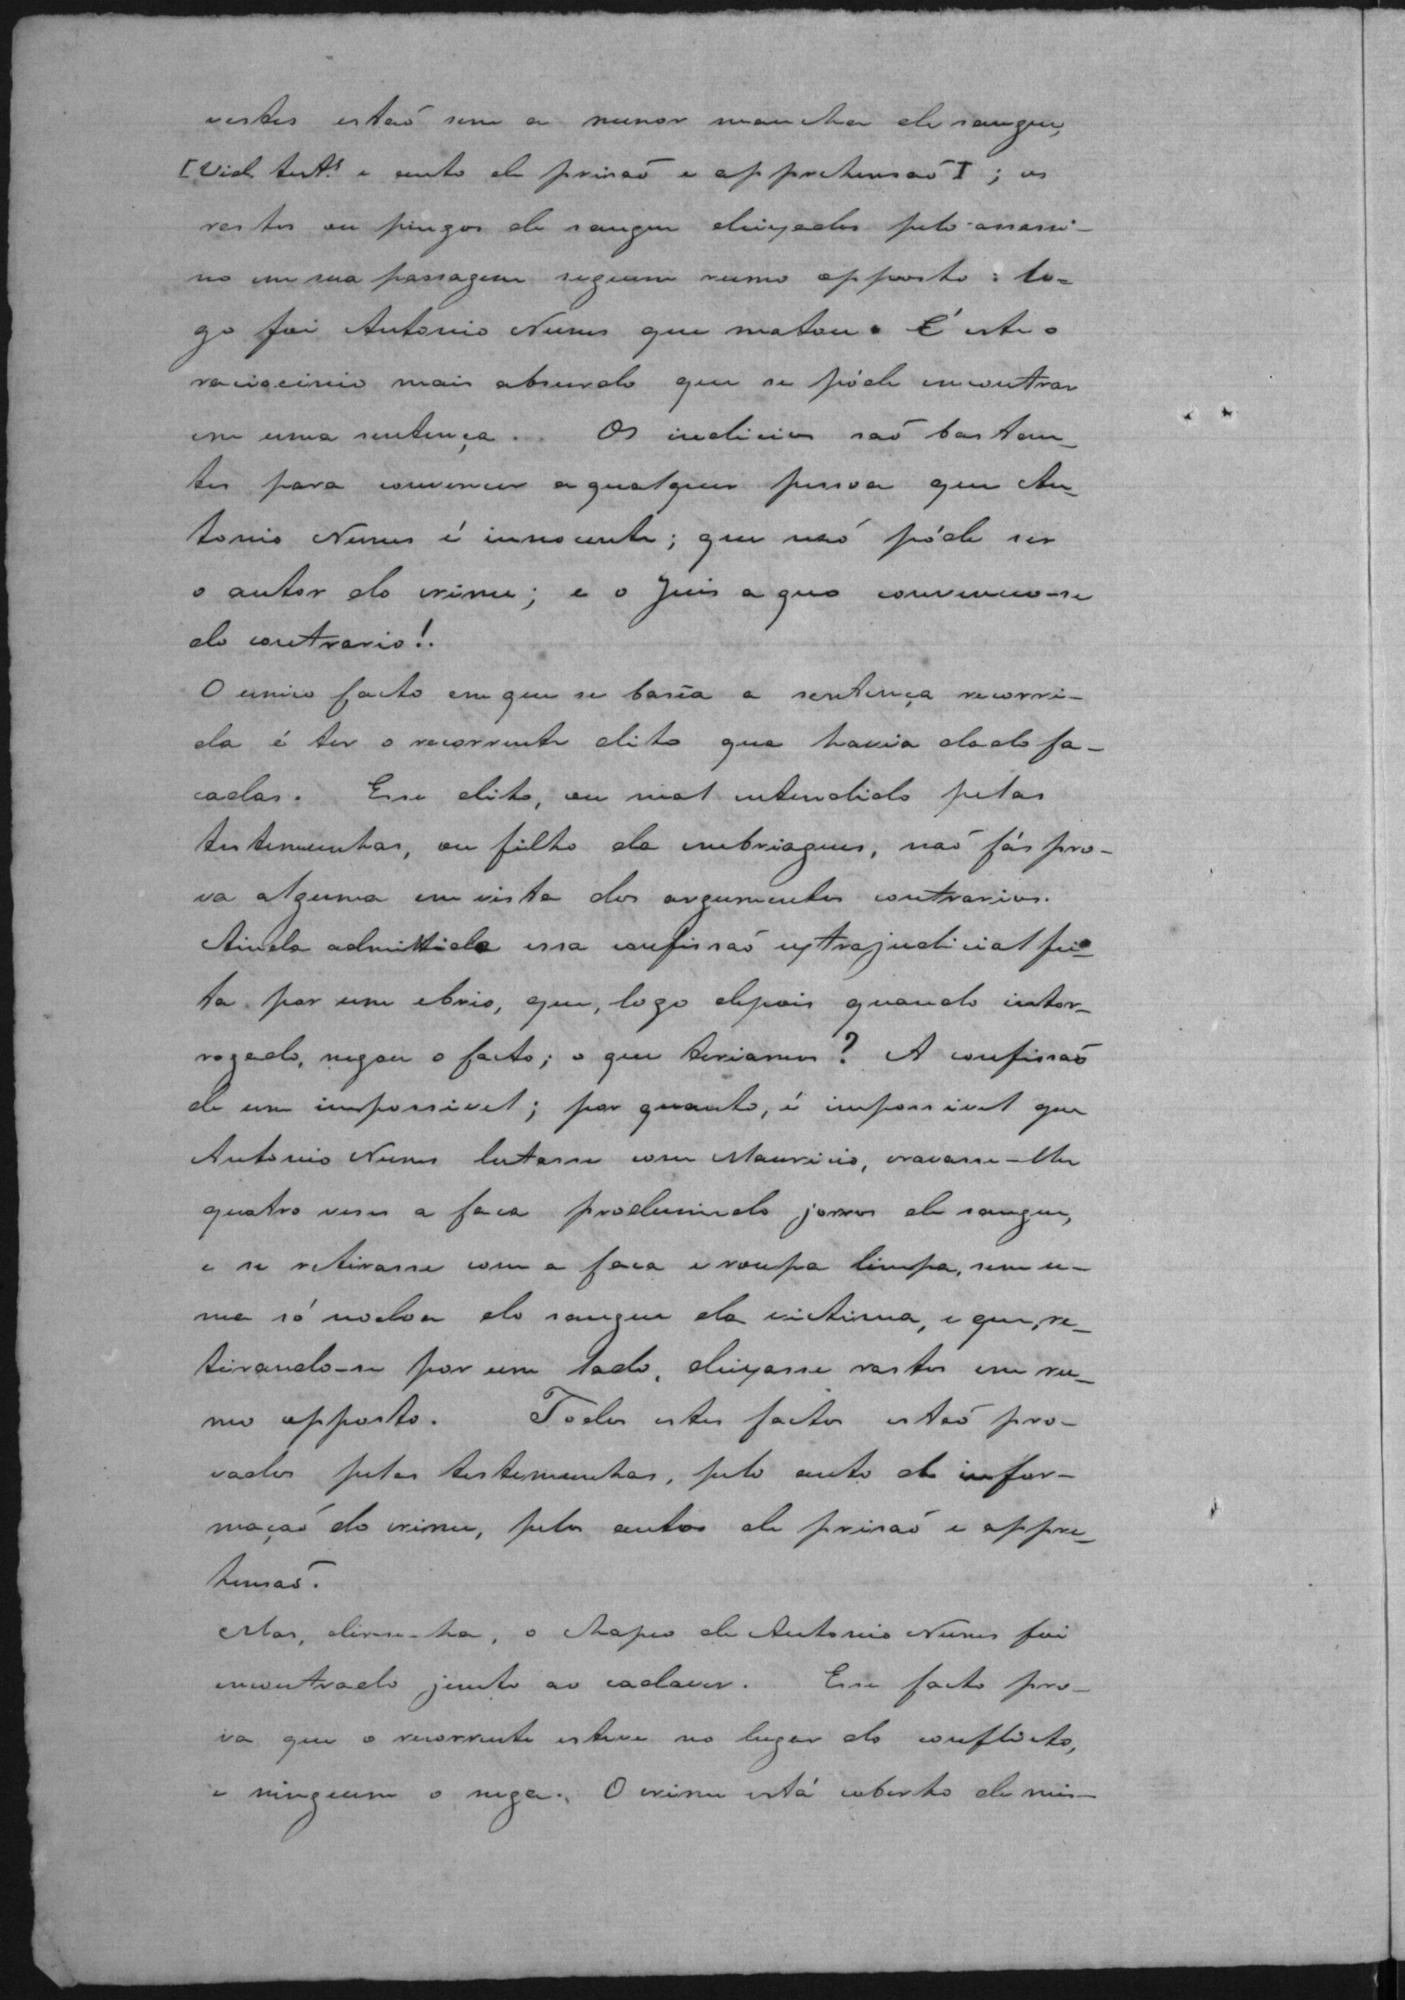 vestes estaó sem a menor mancha de sangue,
[Vid. test.ª e auto de prisaõ e apprehensaõ]; os
rastos ou pingos de sangue deixados pelo assassi-
no em sua passagem seguem rumo opposto: lo-
go foi Antonio Nunes que matou. É este o
raciocinio mais absurdo que se póde encontrar
em uma sentença... Os indicios saõ bastan-
tes para convencer a qualquer pessoa que An-
tonio Nunes é innocente; que naõ póde ser
o autor do crime; e o Juis a quo convenceo-se
do contrario!.
O unico facto em que se baseia a sentença recorri-
da é ter o recorrente dito que havia dado fa-
cadas. Esse dito, ou mal entendido pelas
testemunhas, ou filho da embriagues, naõ fás pro-
va alguma em vista dos argumentos contrarios.
Ainda admittida essa confissaõ extrajudicial fei-
ta por um ebrio, que, logo depois quando inter-
rogado, negou o facto; o que teriamos? A confissaõ
de um impossivel; por quanto, é impossivel que
Antonio Nunes lutasse com Mauricio, cravasse-lhe
quatro veses a faca produsindo jorros de sangue,
e se retirasse com a faca e roupa limpa, sem u-
ma só nodoa do sangue da victima, e que, re-
tirando-se por um lado, deixasse rastos em ru-
mo opposto. Todos estes factos estaõ pro-
vados pelas testemunhas, pelo auto de infor-
maçaõ do crime, pelos autos de prisaõ e appre-
hensaõ.
Mas, dirse-ha, o chapeo de Antonio Nunes foi
encontrado junto ao cadaver. Esse facto pro-
va que o recorrente esteve no lugar do conflicto,
e ninguem o nega. O crime está coberto de mis-